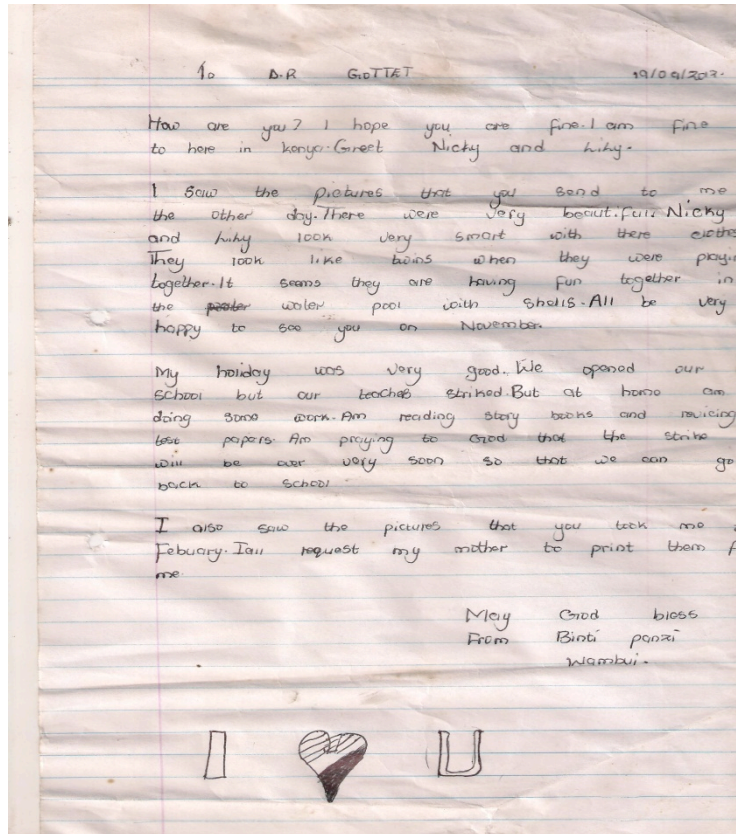 To D.R GOTTET 19/09/2012.
How are you? I hope you are fine. I am fine
to here in kenya. Greet Nicky and Liky.
I saw the pictures that you send to me
the other day. There were very beautiful. Nicky
and Liky look very smart with there clothe
They look like twins when they were playi
together. It seams they are having fun together in
the water pool with shells. All be very
happy to see you on November.
My holiday was very good. We opened our
school but our teaches striked. But at home am
doing some work. Am reading story books and revicing
test papers. Am praying to God that the strike
will be over very soon so that we can go
back to school
I also saw the pictures that you took me
Febuary. I all request my mother to print them f
me.
May God bless
From Binti panzi
Wambui.
I U